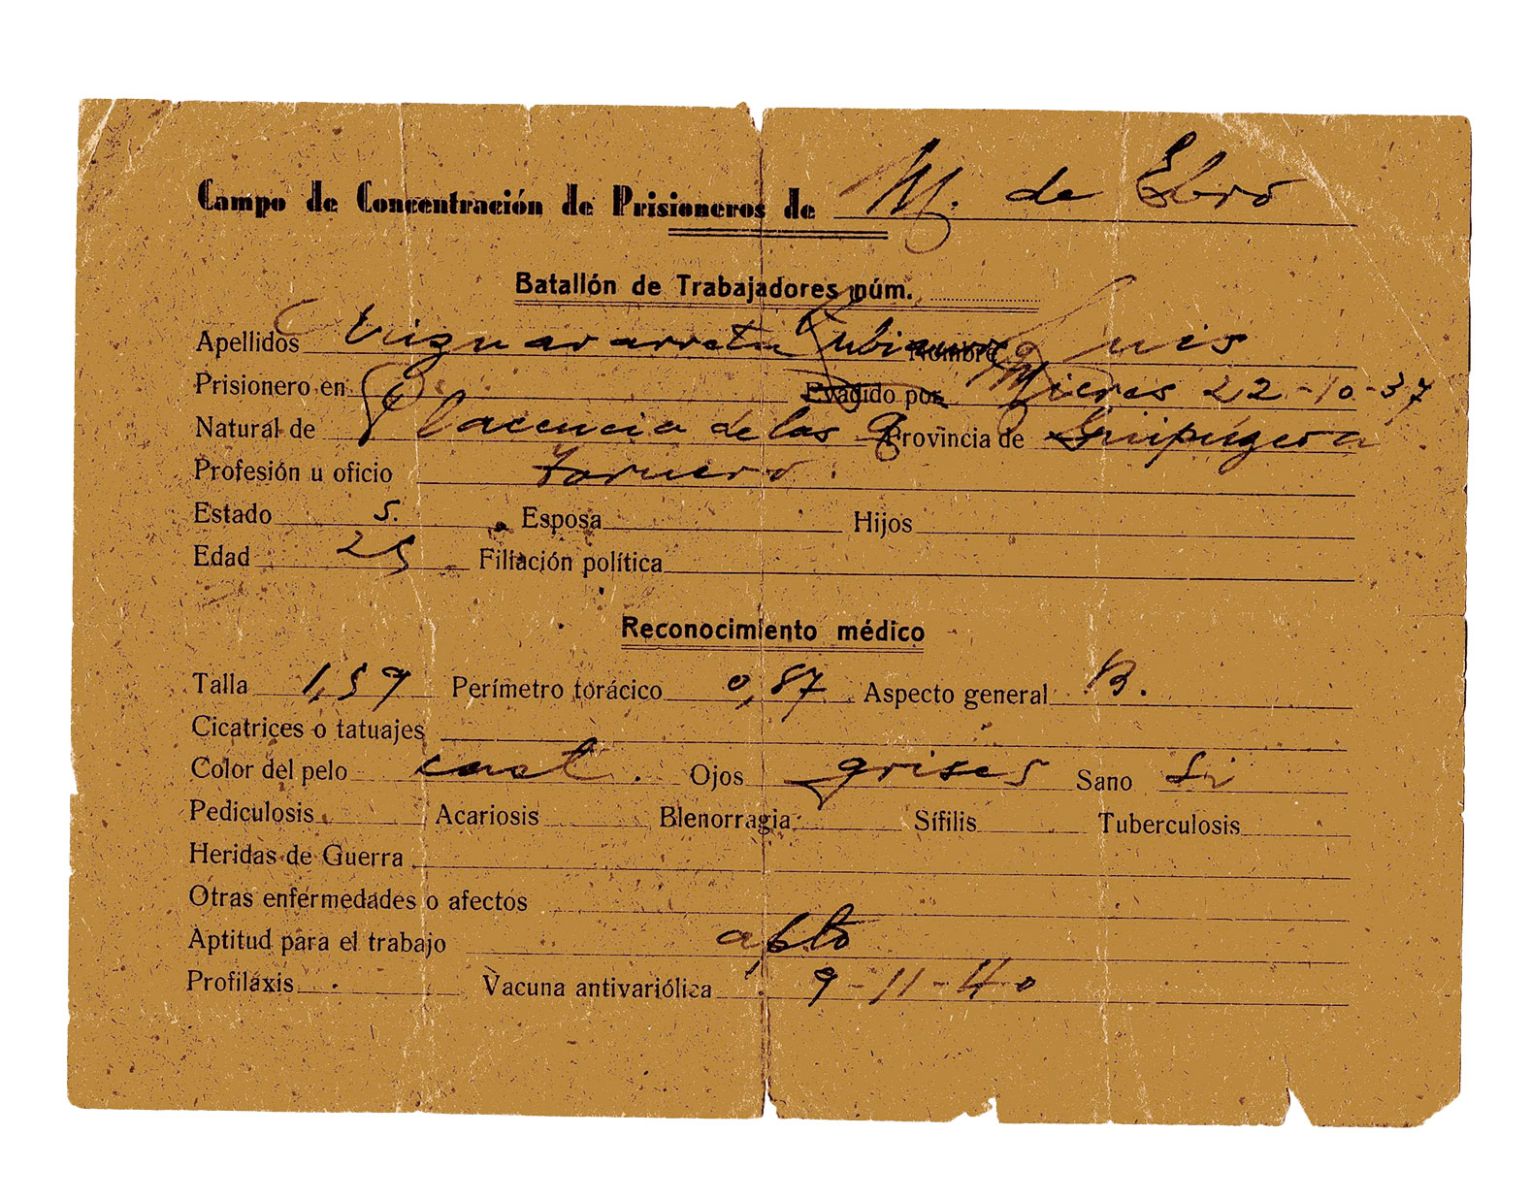 Campo de Concentración de Prisioneros de M. de Ebro
Batallón de Trabajadores núm.
Apellidos Nombre Luis
Prisionero en Evadido por Mieres 22-10-37
Natural de Placencia de las Provincia de Guipúzcoa
Profesión u oficio Tornero.
Estado S. Esposa Hijos
Edad 25 Filiación política
Reconocimiento médico
Talla 1,59 Perímetro torácico 0,87 Aspecto general B.
Cicatrices o tatuajes
Color del pelo cast. Ojos grises Sano Si
Pediculosis Acariosis Blenorragia Sífilis Tuberculosis
Heridas de Guerra
Otras enfermedades o afectos
Aptitud para el trabajo apto
Profilaxis Vacuna antivariólica 9-11-40